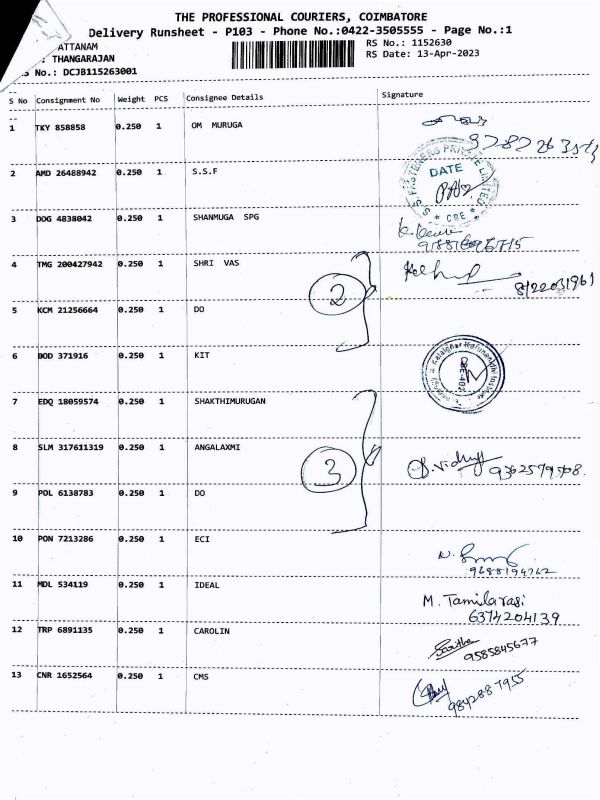 THE PROFESSIONAL COURIERS, COIMBATORE
Delivery Runsheet - P103 - Phone No.:0422-3505555 - Page No.:1
ATTANAM
RS No.: 1152630
: THANGARAJAN
RS Date: 13-Apr-2023
No.: DCJB115263001
S No Consignment No Weight PCS Consignee Details Signature
1 TKY 858858 0.250 1 OM MURUGA
2 AMD 26488942 0.250 1 S.S.F
DATE
CBE
3 DDG 4838042 0.250 1 SHANMUGA SPG
4 TMG 200427942 0.250 1 SHRI VAS
8122031961
2
5 KCM 21256664 0.250 1 DO
6 BOD 371916 0.250 1 KIT
7 EDQ 18059574 0.250 1 SHAKTHIMURUGAN
8 SLM 317611319 0.250 1 ANGALAXMI
3
9 POL 6138783 0.250 1 DO
10 PON 7213286 0.250 1 ECI
9688194262
11 MDL 534119 0.250 1 IDEAL
M. Tamilarasi
6374204139
12 TRP 6891135 0.250 1 CAROLIN
9585845677
13 CNR 1652564 0.250 1 CMS
9842887955